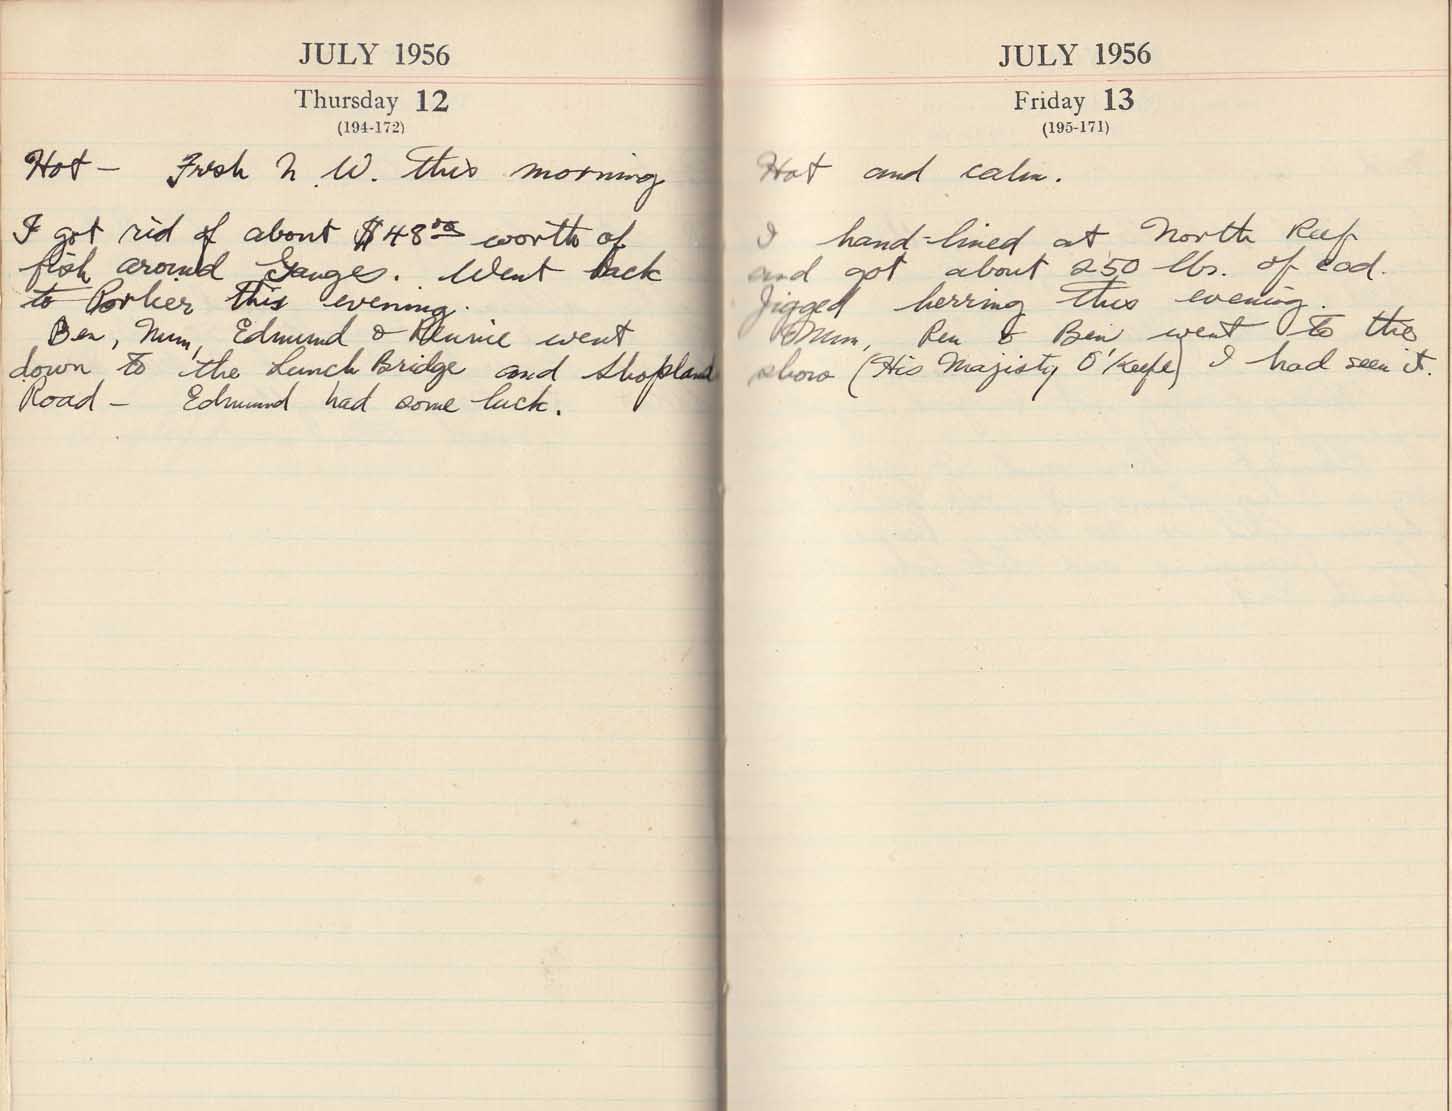 JULY 1956
Thursday 12
(194-172)
Hot - Fresh N.W. this morning
I got rid of about $48.00 worth of
fish around Ganges. Went back
to Porlier this evening.
Ben, Mum, Edmund & Rennie went
down to the Lunch Bridge and Shopland
Road - Edmund had some luck.
JULY 1956
Friday 13
(195-171)
Hot and calm.
I hand-lined at North Reef
and got about 250 lbs. of cod.
Jigged herring this evening.
Mum, Ren & Ben went to the
show (His Majisty O'Keefe) I had seen it.